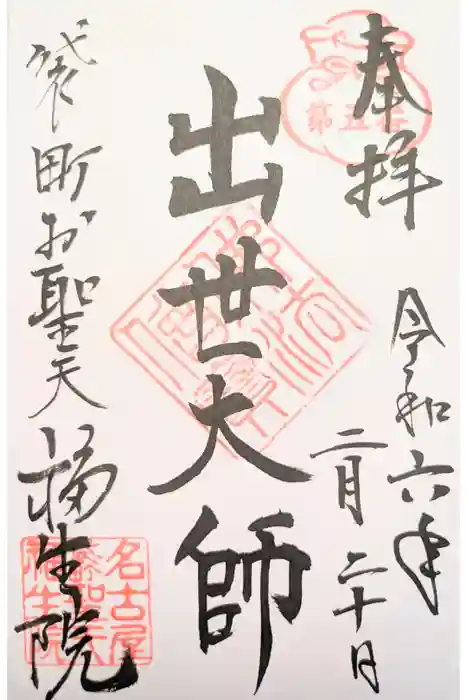 奉拝
第五番
令和六年
二月二十日
出世大師
袋町お聖天
福生院
名古屋
福生院